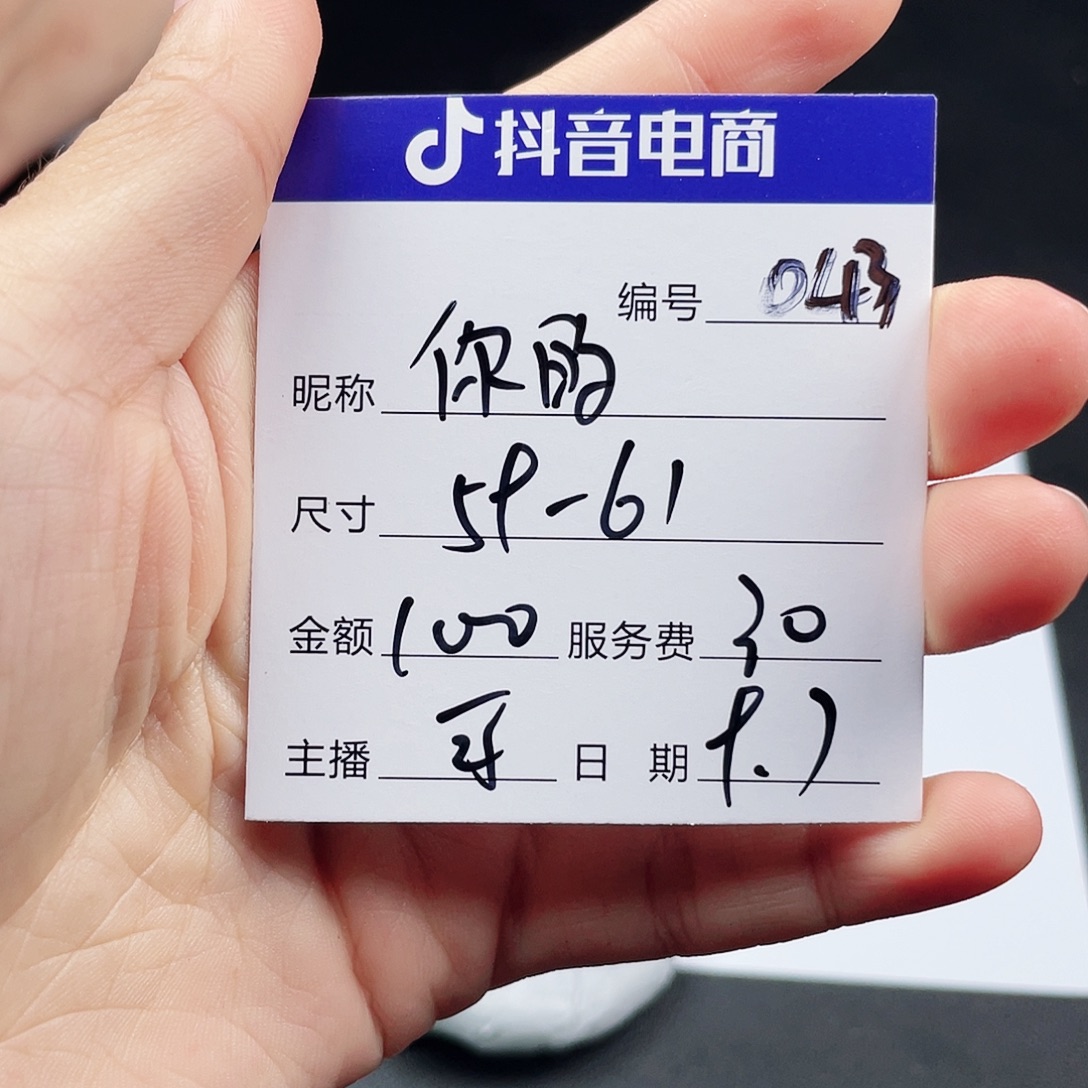 抖音电商
编号 043
昵称 你的
尺寸 59-61
金额 100 服务费 30
主播 日期 9.7